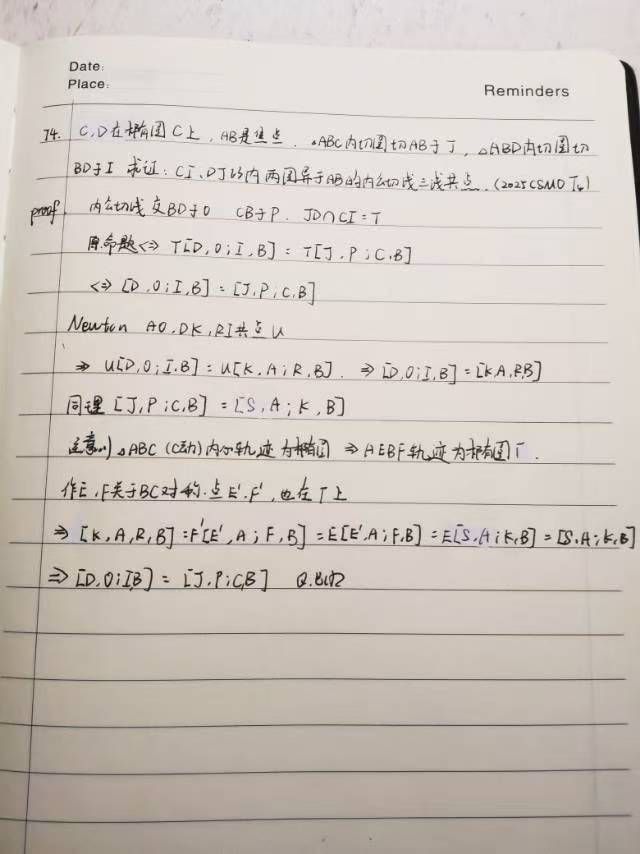 Date:
Place:
Reminders
74. C,D在椭圆C上,AB是焦点.△ABC内切圆切AB于J,△ABD内切圆切
BD于I 求证:CI、DJ以内两圆异于AB的内公切线三线共点.(2025CSMO T6)
proof. 内公切线交BD于O CB于P. JD∩CI=T
原命题<=> T[D,O;I,B]=T[J,P;C,B]
<=> [D,O;I,B]=[J,P;C,B]
Newton AO,DK,RI共点U
⇒ U[D,O;I,B]=U[K,A;R,B]. ⇒[D,O;I,B]=[K,A,R,B]
同理 [J,P;C,B]=[S,A;K,B]
注意到△ABC(C动)内心轨迹为椭圆 ⇒AEBF轨迹为椭圆Γ.
作E,F关于BC对称点E',F',也在Γ上
⇒[K,A,R,B]=F'[E',A;F,B]=E[E',A;F,B]=E[S,A;K,B]=[S,A;K,B]
⇒[D,O;I,B]=[J,P;C,B]